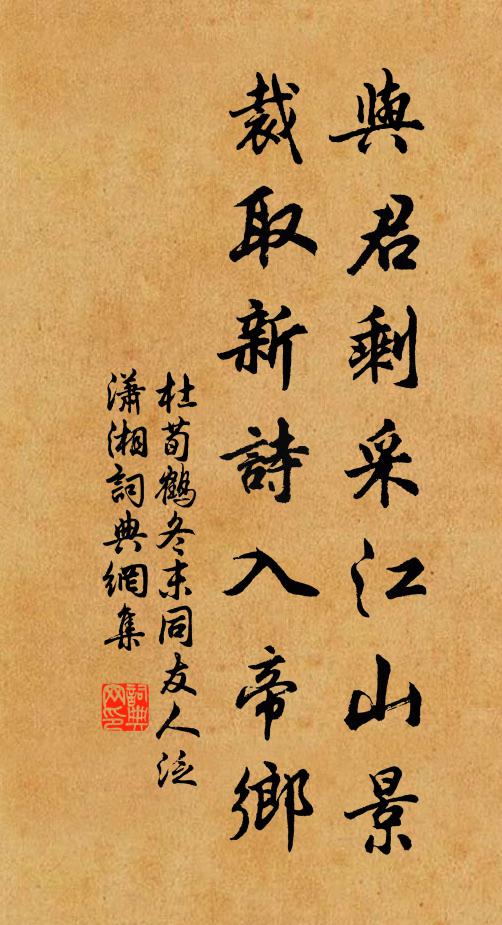 與君剩采江山景
裁取新詩入帝鄉
杜荀鶴冬末同友人泛
瀟湘詞典網集
詞典网印